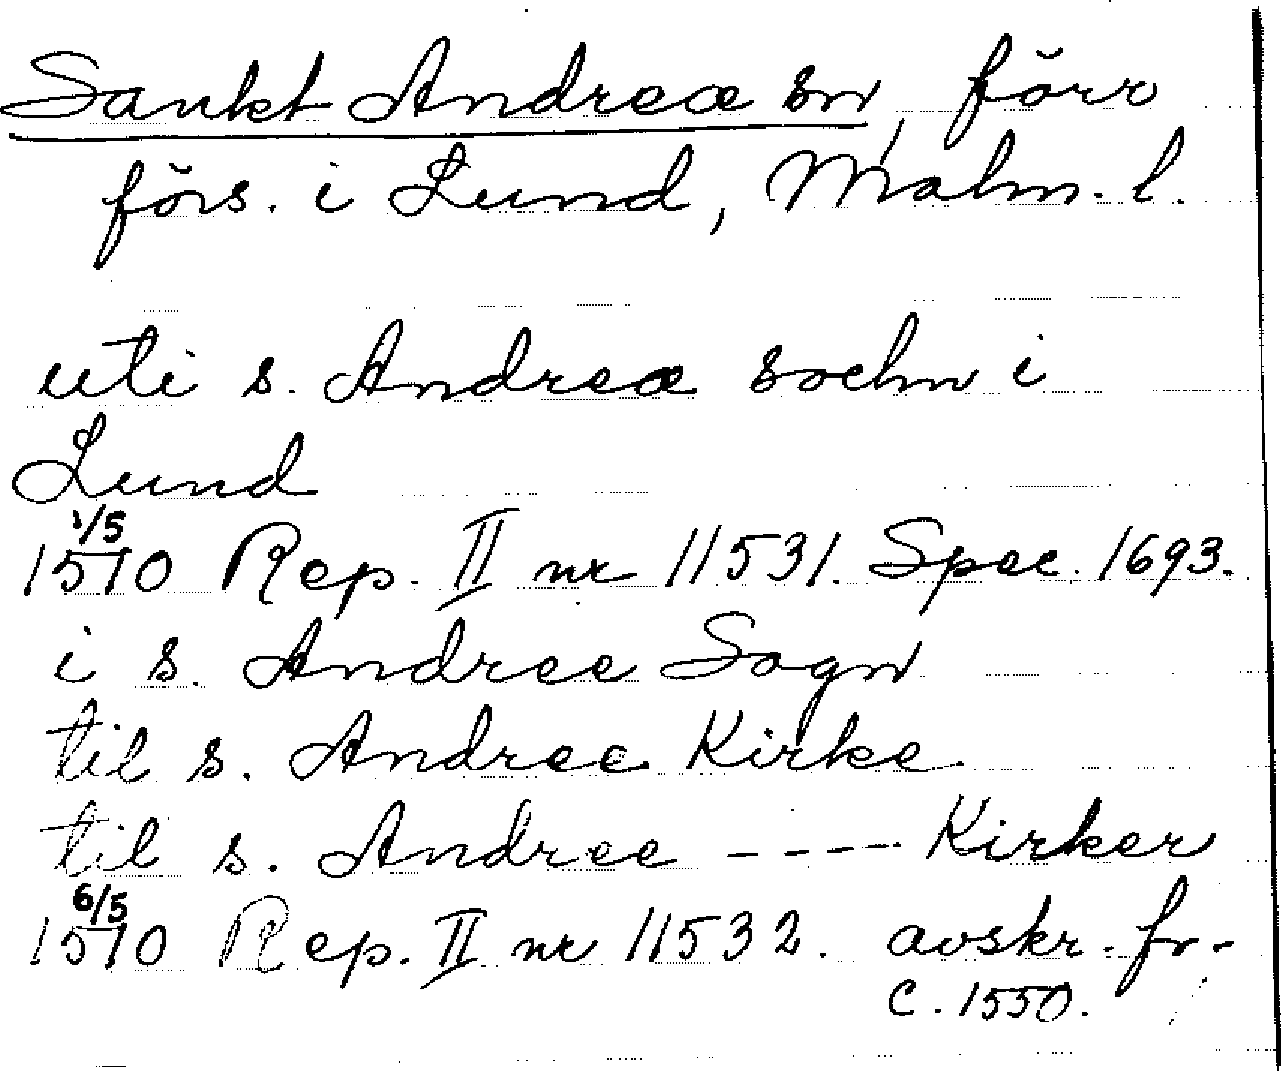 Sankt Andreæ sn, förr
förs. i Lund, Malm. l.
uti s. Andreæ sochn i
Lund
1/5
1510 Rep. II nr 11531. Spec. 1693.
i s. Andree Sogn
til s. Andree Kirke
til s. Andree ---- Kirker
6/5
1510 Rep. II nr 11532. avskr. fr.
c. 1550.